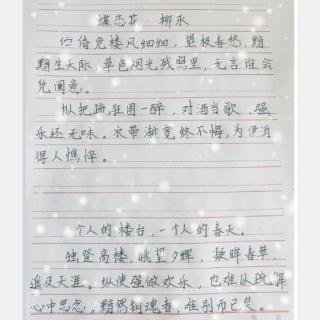 蝶恋花 · 柳永
伫倚危楼风细细,望极春愁,黯
黯生天际,草色烟光残照里,无言谁会
凭阑意。
拟把疏狂图一醉,对酒当歌,强
乐还无味。衣带渐宽终不悔,为伊消
得人憔悴。
一个人的楼台,一个人的春天。
独登高楼,眺望夕辉,凝眸春草,
遥及天涯。纵使强做欢乐,也难以疏解
心中思念。黯然销魂者,唯别而已矣。